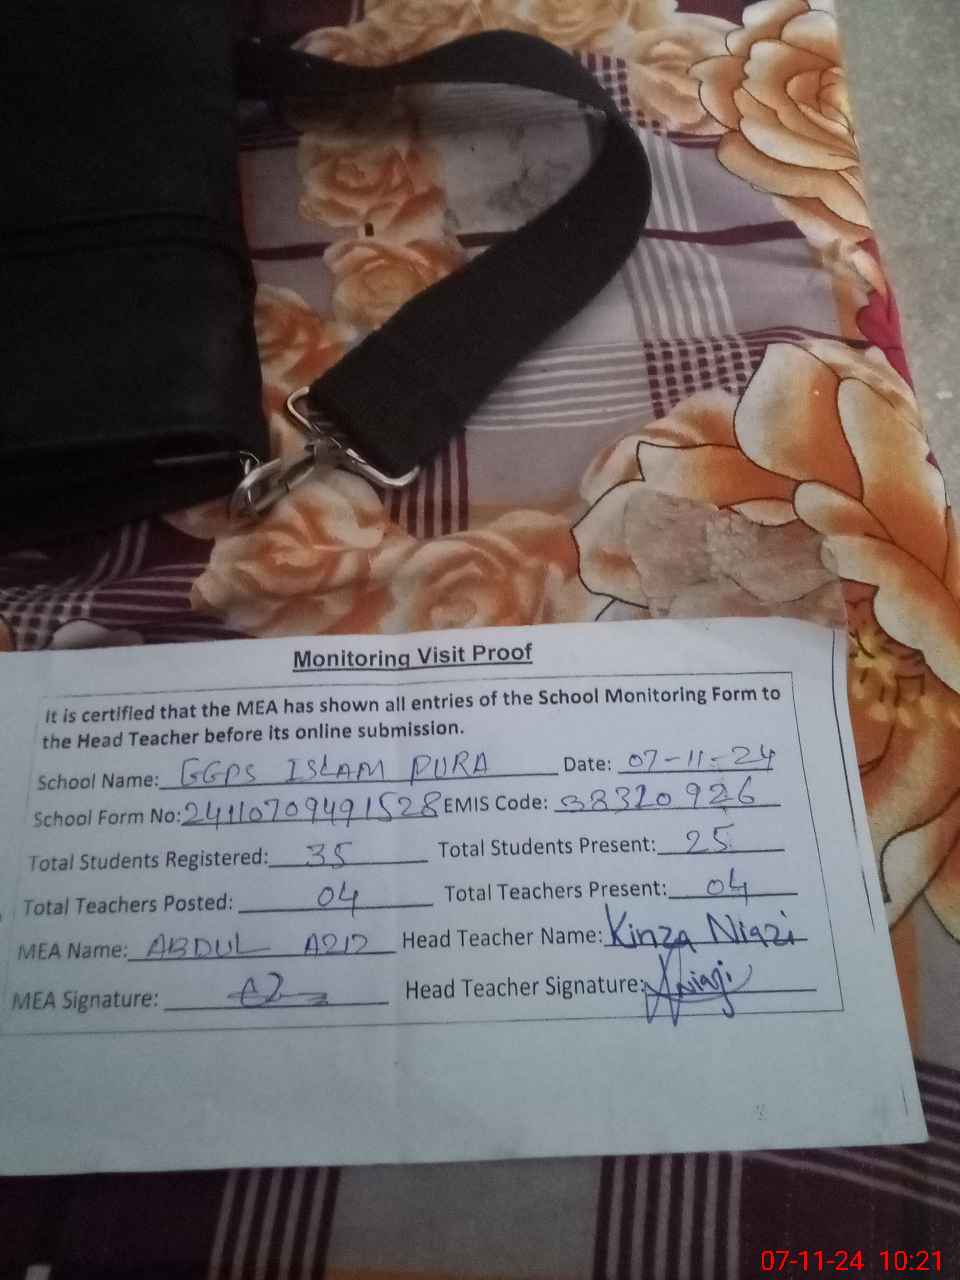 Monitoring Visit Proof
It is certified that the MEA has shown all entries of the School Monitoring Form to
the Head Teacher before its online submission.
School Name: GGPS ISLAM PURA Date: 07-11-24
School Form No: 24110709491528 EMIS Code: 38320926
Total Students Registered: 35 Total Students Present: 25
Total Teachers Posted: 04 Total Teachers Present: 04
MEA Name: ABDUL AZIZ Head Teacher Name: Kinza Niazi
MEA Signature: Head Teacher Signature: Niazi
07-11-24 10:21